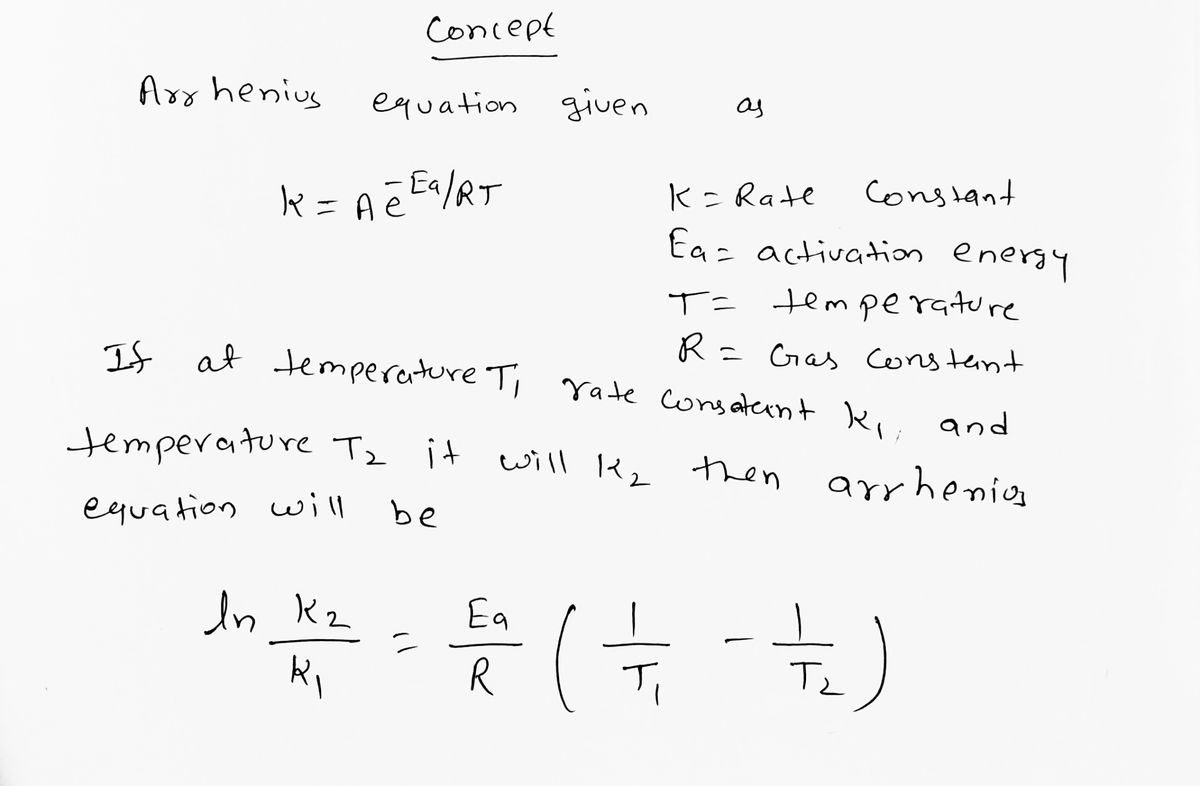 Concept
Arrhenius equation given as
k = A e^-Ea/RT
K = Rate Constant
Ea = activation energy
T = temperature
R = Gas Constant
If at temperature T1 rate consatant k1, and
temperature T2 it will k2 then arrhenius
equation will be
ln K2/K1 = Ea/R ( 1/T1 - 1/T2 )